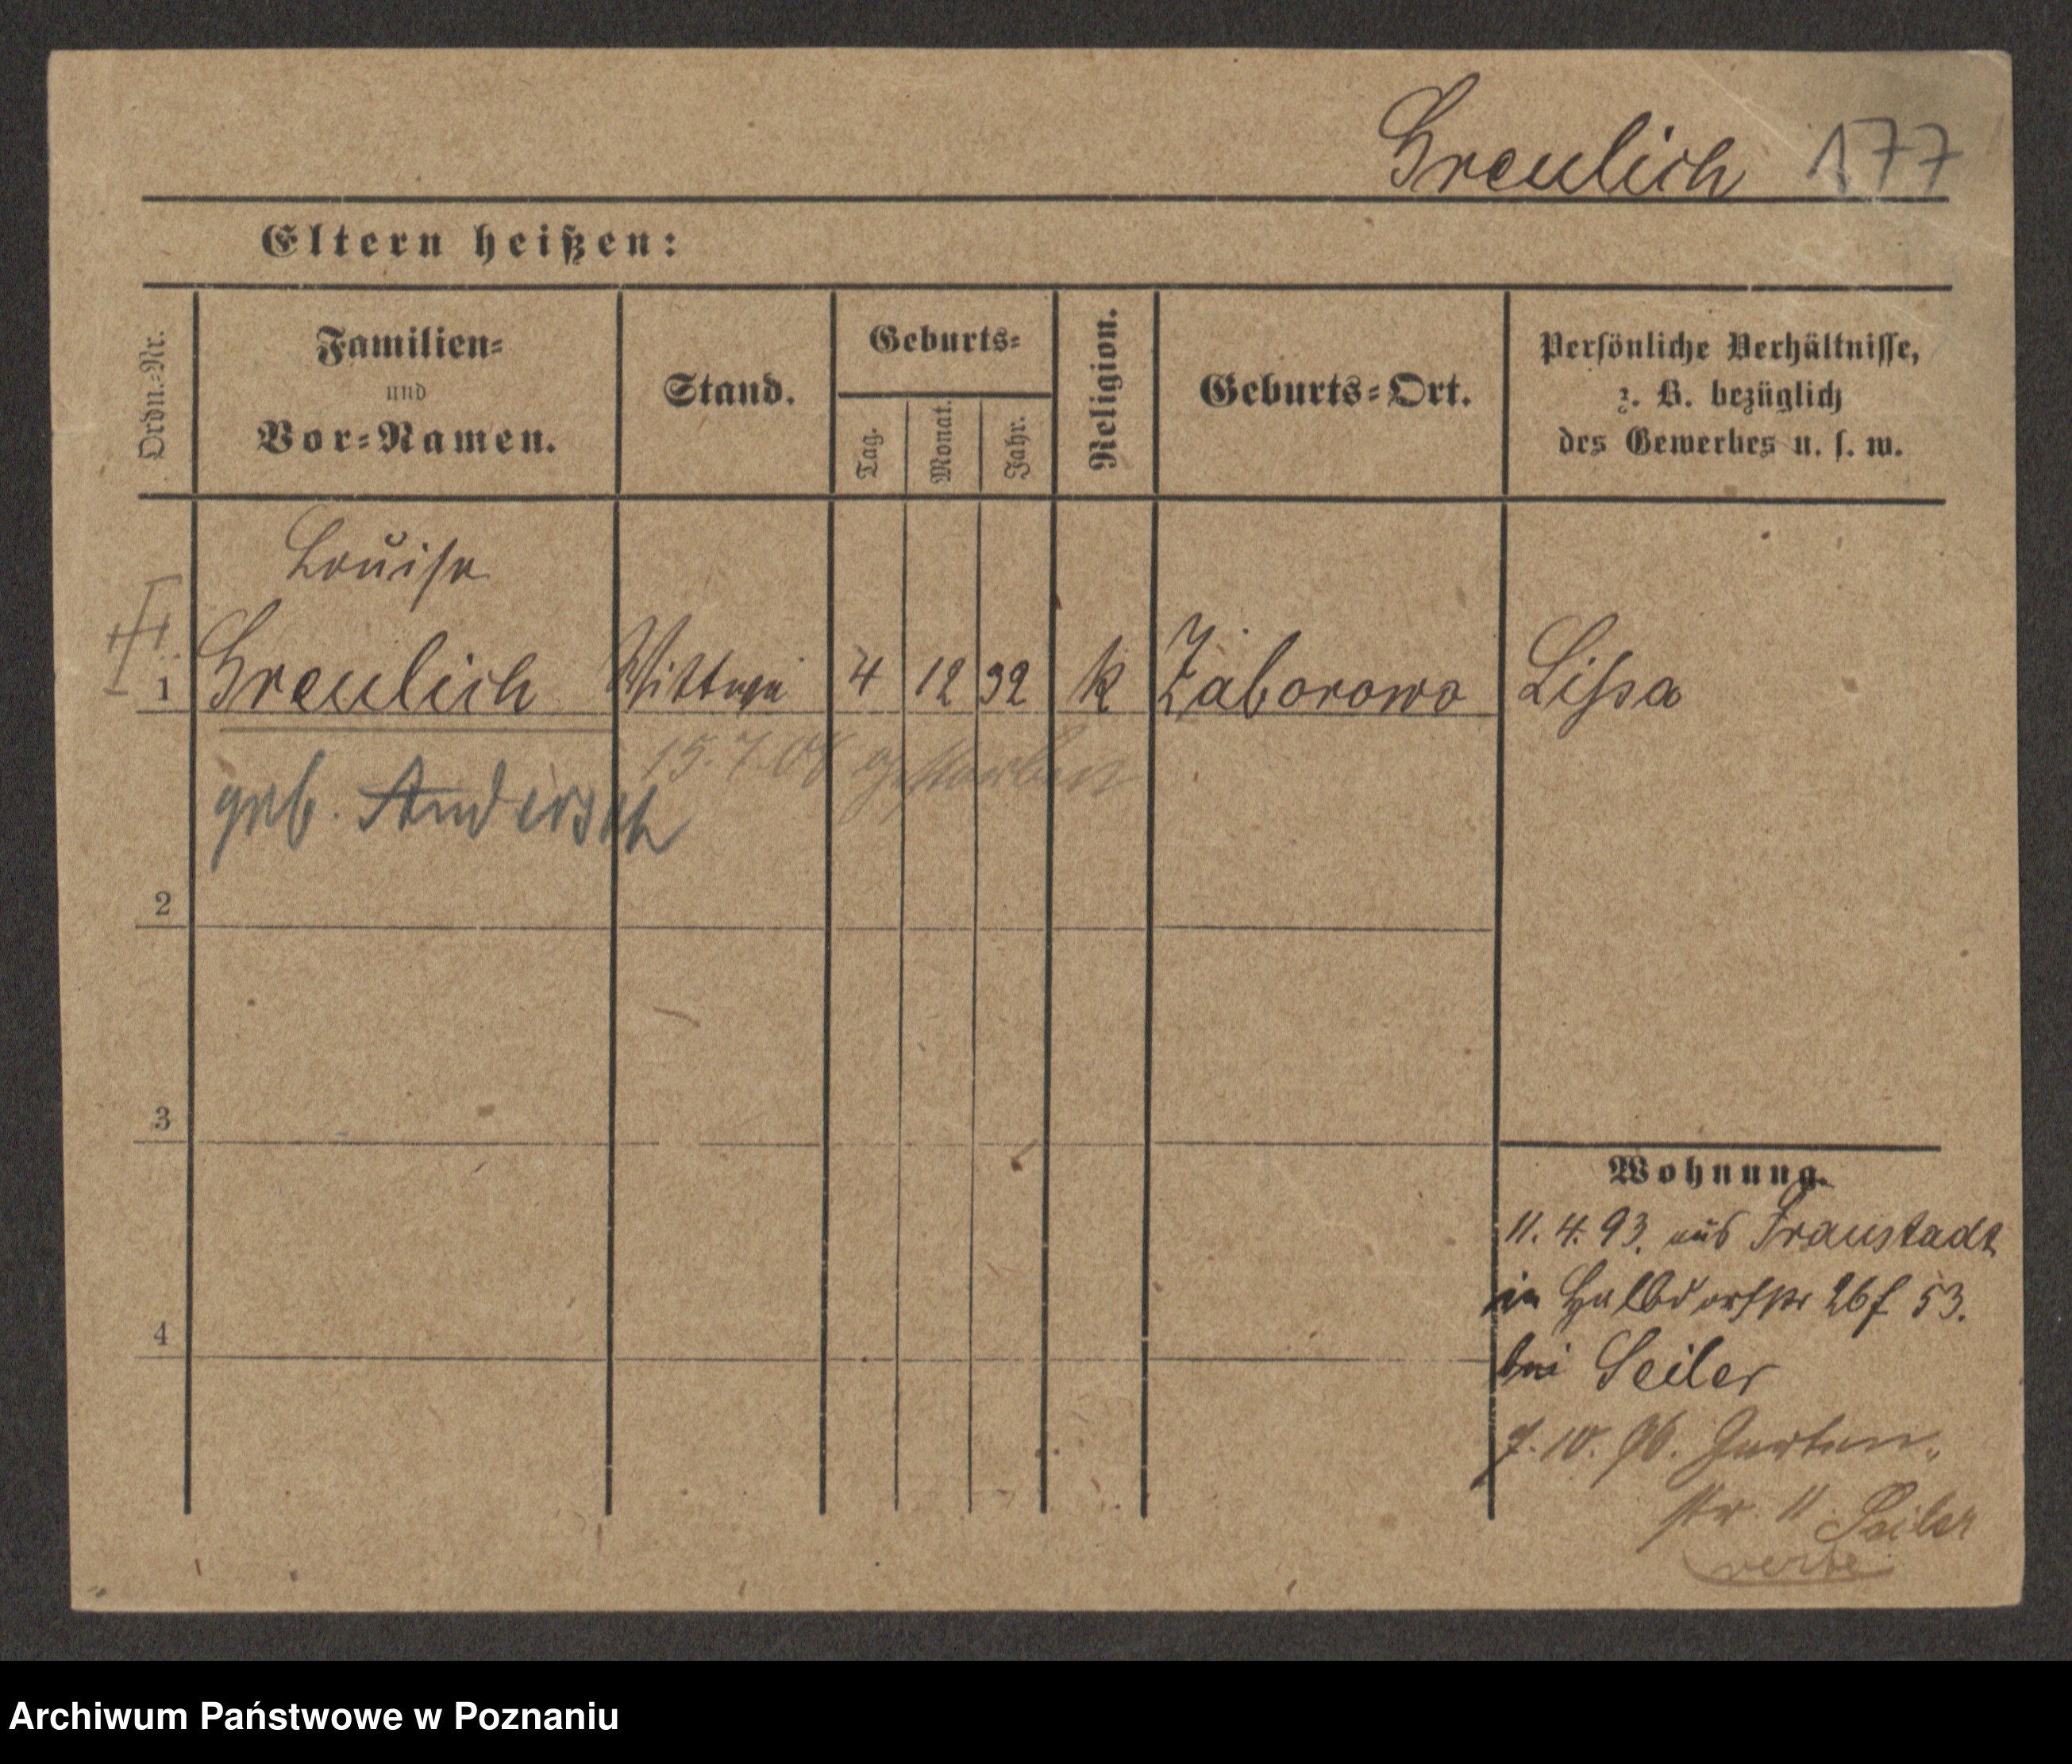 Greulich 177
Eltern heißen:
Ordn.-Nr.
Familien-
und
Vor-Namen.
Stand.
Geburts-
Tag.
Monat.
Jahr.
Religion.
Geburts-Ort.
Persönliche Verhältnisse,
z. B. bezüglich
des Gewerbes u. s. w.
Louise
1 Greulich Wittwe 4 12 32 k Zaborowo Lissa
15.7.06 gestorben
geb. Andersch
2
3
4
Wohnung.
11. 4. 93. aus Fraustadt
in Halbdorfstr 26 f 53.
bei Seiler
7. 10. 96. Garten-
str. 11 Seiler
Archiwum Państwowe w Poznaniu